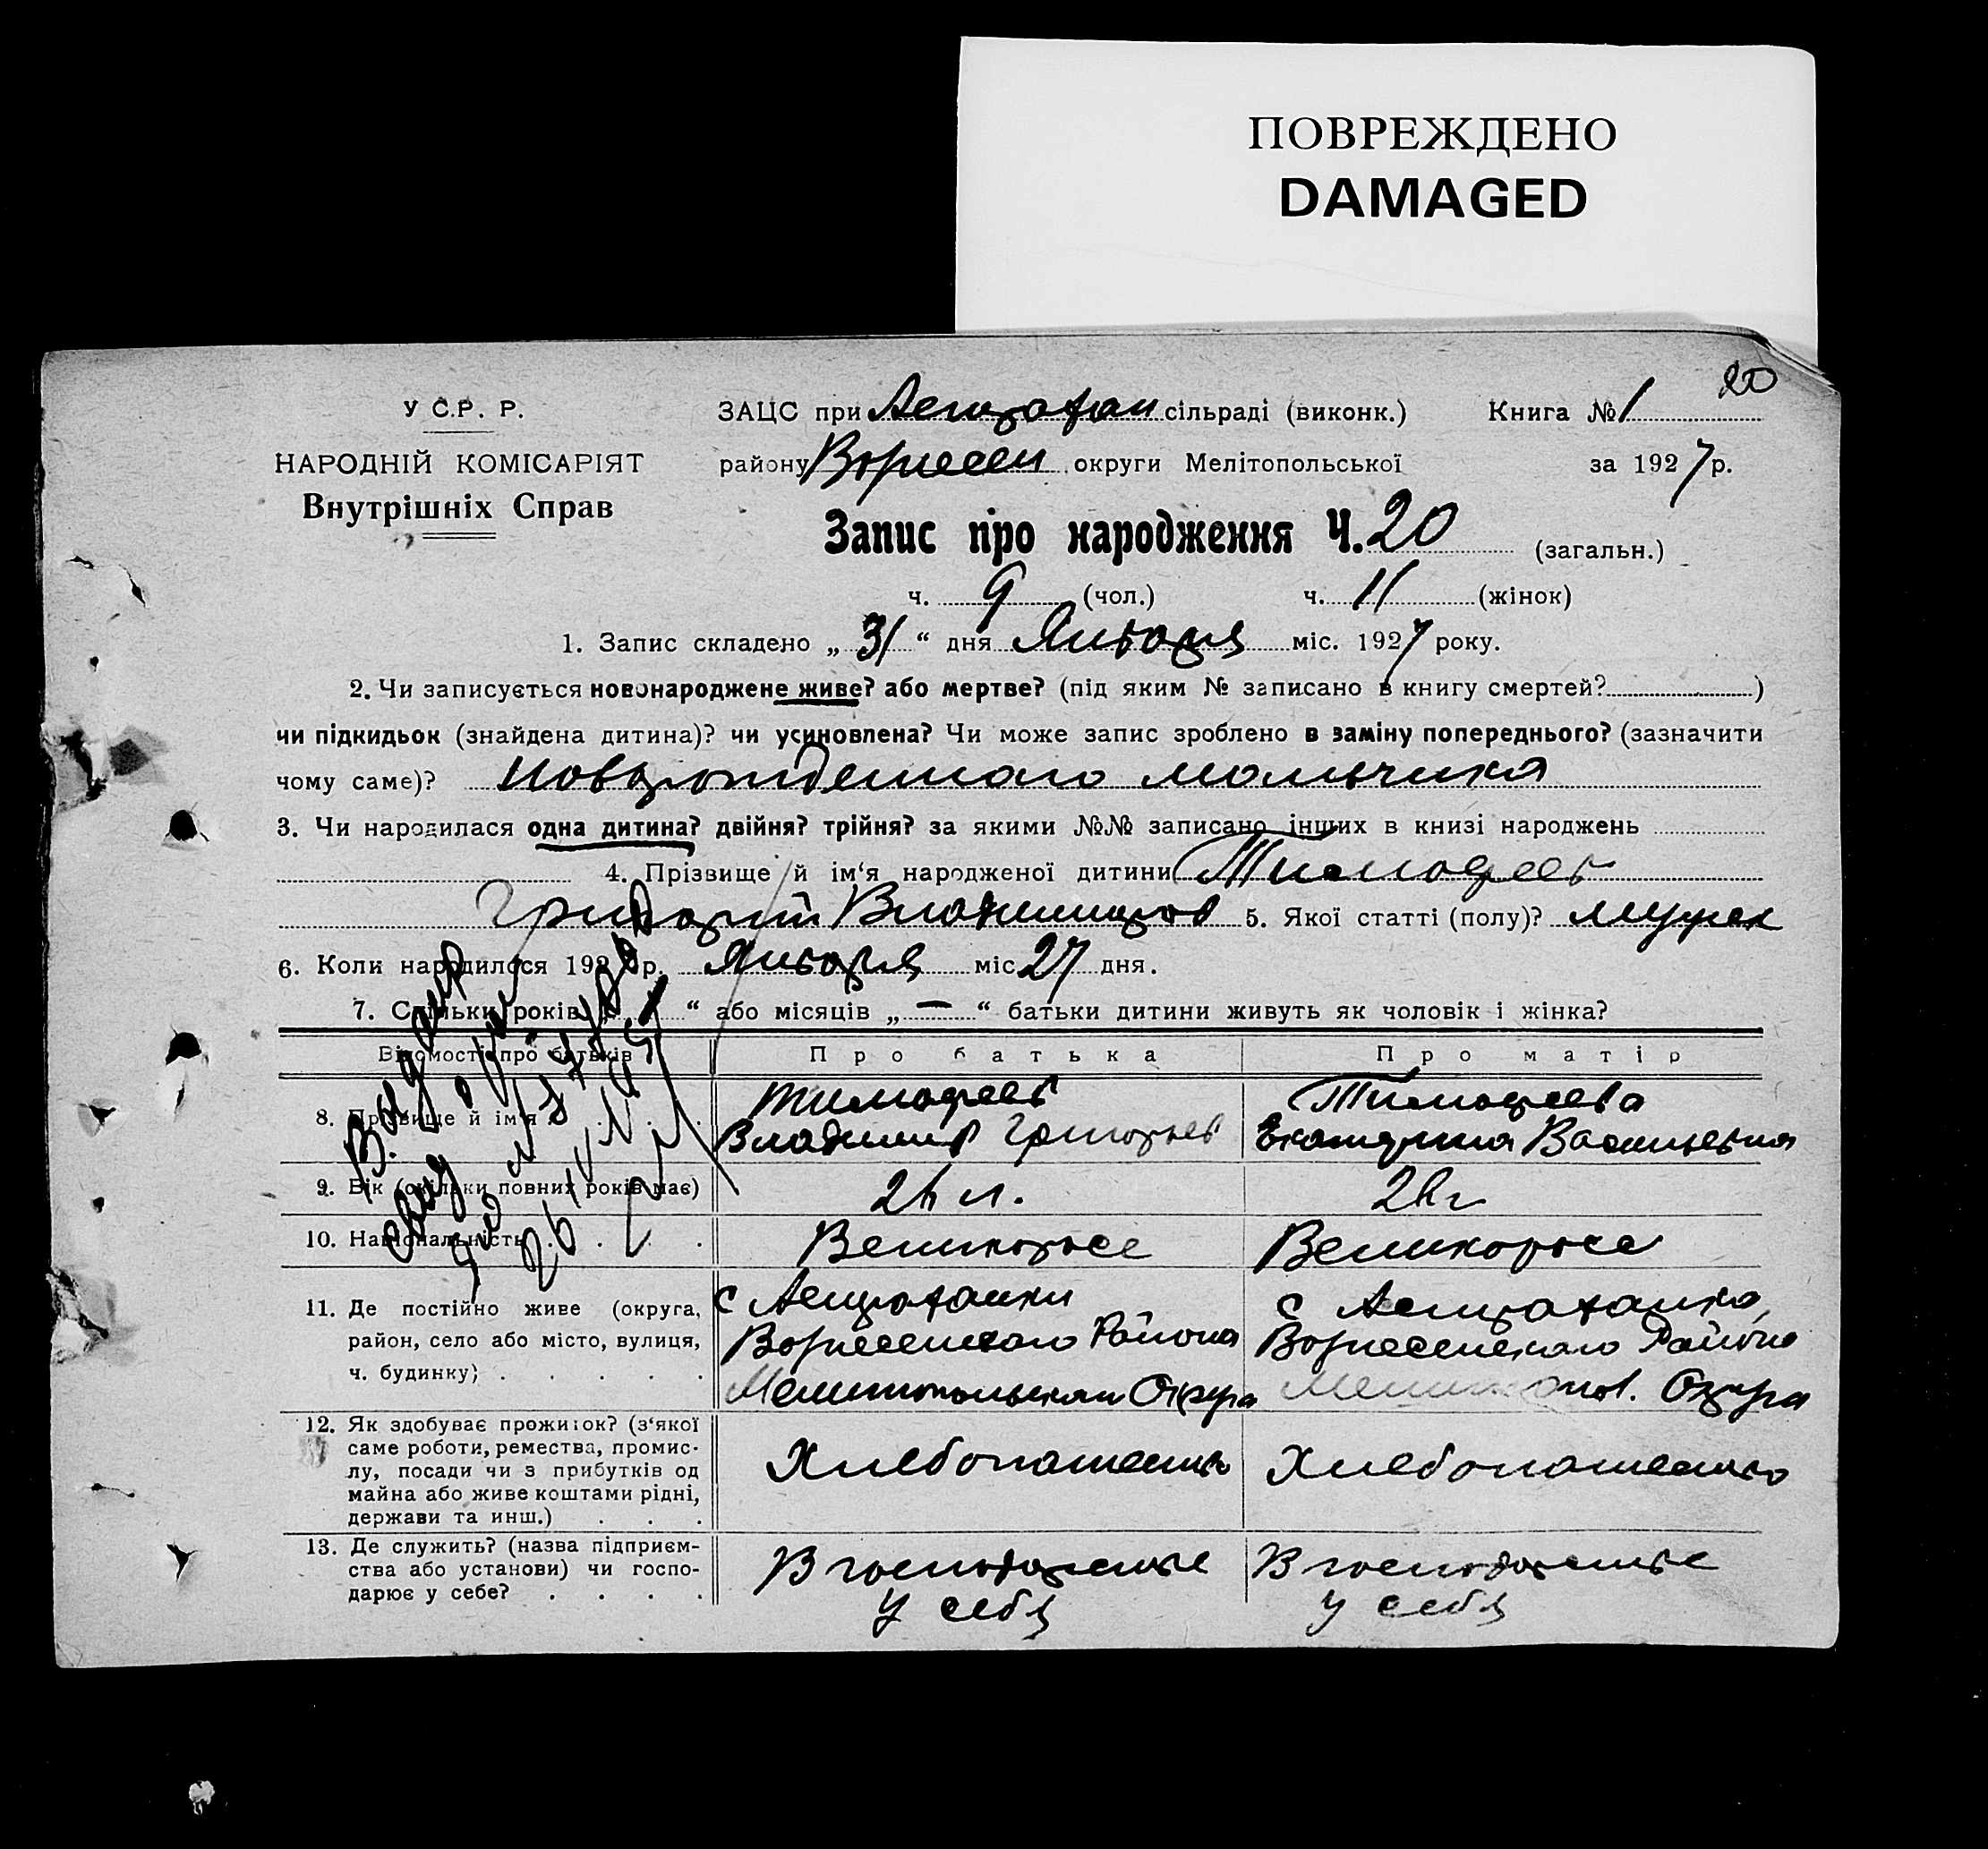 ПОВРЕЖДЕНО
DAMAGED
20
У С.Р. Р.
НАРОДНІЙ КОМІСАРІЯТ
Внутрішніх Справ
ЗАЦС при сільраді (виконк.) Книга № 1
району Вознесен округи Мелітопольської за 1927 р.
Запис про народження Ч. 20 (загальн.)
ч. 9 (чол.) ч. 11 (жінок)
1. Запис складено „ 31 “ дня Января міс. 1927 року.
2. Чи записується новонароджене живе? або мертве? (під яким № записано в книгу смертей? )
чи підкидьок (знайдена дитина)? чи усиновлена? Чи може запис зроблено в заміну попереднього? (зазначити
чому саме)? Новорожденного мальчика
3. Чи народилася одна дитина? двійня? трійня? за якими №№ записано інших в книзі народжень
4. Прізвище й ім‘я народженої дитини Тимофеев
Владимиров 5. Якої статті (полу)? мужск
6. Коли народилося 192 р. Января міс 27 дня.
7. Скільки років „ 1 “ або місяців „ — “ батьки дитини живуть як чоловік і жінка?
Відомості про батьків Про батька Про матір
8. Прізвище й ім‘я Тимофеев Владимир Григорьев Тимофеева Екатерина Васильевна
9. Вік (скільки повних років має)
10. Національність Великоросс Великоросс
11. Де постійно живе (округа, район, село або місто, вулиця, ч. будинку)
с Астраханки
Вознесенского Района
Мелитопольский Округа
с Астраханка,
Вознесенского Района
Мелитопол. Округа
12. Як здобуває прожиток? (з‘якої
саме роботи, ремества, промис-
лу, посади чи з прибутків од
майна або живе коштами рідні,
держави та инш.)
Хлебопашество Хлебопашество
13. Де служить? (назва підприєм-
ства або установи) чи госпо-
дарює у себе?
у себя
у себя